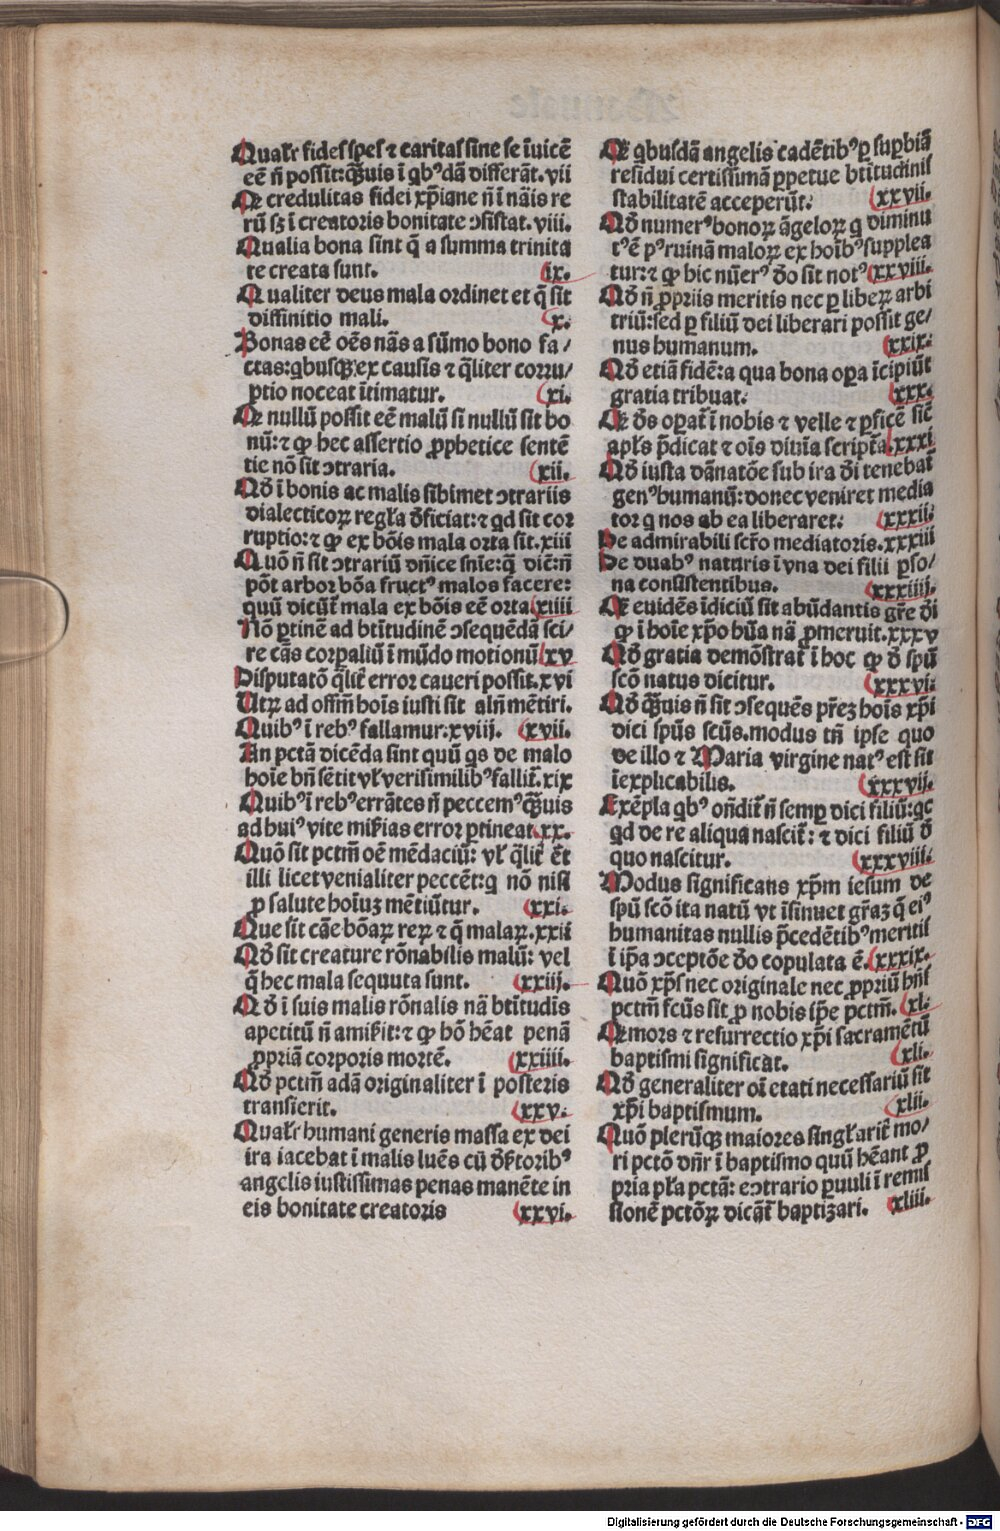 Qualr̃ fides spes ⁊ caritas sine se ĩuicẽ
eẽ ñ possit: qͣuis ĩ qbꝰdã differãt. vii
Qꝫ credulitas fidei xp̃iane ñ ĩ nãis re
rũ sꝫ ĩ creatoris bonitate ↄsistat. viii.
Qualia bona sint q̃ a summa trinita
te creata sunt. ix.
Qualiter deus mala ordinet et q̃ sit
diffinitio mali. x.
Bonas eẽ oẽs nãs a sũmo bono fa/
ctas: qbusqꝫ ex causis ⁊ q̃liter corru/
ptio noceat ĩtimatur. xi.
Qꝫ nullũ possit eẽ malũ si nullũ sit bo
nũ: ⁊ ꝙ hec assertio ꝓphetice sentẽ
tie nõ sit ↄtraria. xii.
Qð ĩ bonis ac malis sibimet ↄtrariis
dialecticoꝝ regła ðficiat: ⁊ qd sit cor
ruptio: ⁊ ꝙ ex bõis mala orta sit. xiii
Quõ ñ sit ↄtrariũ dñice snĩe: q̃ dic̃: ñ
põt arbor bõa fructꝰ malos facere:
quũ dicũt̃ mala ex bõis eẽ orta xiiii
Nõ ꝑtinẽ ad btĩtudinẽ ↄsequẽdã sci/
re cãs corꝑaliũ ĩ mũdo motionũ xv
Disputatõ q̃lit̃ error caueri possit. xvi
Utꝝ ad offm̃ hoĩs iusti sit alñ mẽtiri.
Quibꝰ ĩ rebꝰ fallamur: xviij. xvii.
An pctã dicẽda sint quũ qs de malo
hoĩe bñ sẽtit vł verisimilibꝰ fallit̃. xix
Quibꝰ ĩ rebꝰ errãtes ñ peccemꝰ qͣuis
ad huiꝰ vite mis̃ias error ꝑtineat xx.
Quõ sit pctm̃ oẽ mẽdaciũ: vł q̃lit̃ et̃
illi licet venialiter peccẽt: q nõ nisi
ꝓ salute hoĩuꝫ mẽtiũtur. xxi.
Que sit cãe bõaꝝ reꝝ ⁊ q̃ malaꝝ. xxii
Qð sit creature rõnabilis malũ: vel
q̃ hec mala sequuta sunt. xxiij.
Qð ĩ suis malis rõnalis nã btĩtudĩs
apetitũ ñ amisit: ⁊ ꝙ hõ hẽat penã
ꝓpriã corporis mortẽ. xxiiii.
Qð pctm̃ adã originaliter ĩ posteris
transierit. xxv.
Qualr̃ humani generis massa ex dei
ira iacebat ĩ malis luẽs cũ ðs̃toribꝰ
angelis iustissimas penas manẽte in
eis bonitate creatoris xxvi.
Qꝫ qbusdã angelis cadẽtibꝰ ꝑ suꝑbiã
residui certissimã ꝑpetue btĩtudinis
stabilitatẽ acceperũt. xxvii.
Qð numerꝰ bonoꝝ ãgeloꝝ q diminu
tꝰ ẽ pꝰ ruinã maloꝝ ex hoĩbꝰ supplea
tur: ⁊ ꝙ hic nũerꝰ ðo sit notꝰ xxviii.
Qð ñ ꝓpriis meritis nec ꝑ libeꝝ arbi
triũ: sed ꝑ filiũ dei liberari possit ge/
nus humanum. xxix.
Qð etiã fidẽ: a qua bona oꝑa ĩcipiũt
gratia tribuat. xxx.
Qꝫ ðs oꝑat̃ ĩ nobis ⁊ velle ⁊ ꝑficẽ sic̃
apłs p̃dicat ⁊ oĩs diuĩa script̃a. xxxi
Qð iusta dãnatõe sub ira ði tenebat̃
genꝰ humanũ: donec veniret media
tor q nos ab ea liberaret. xxxii.
De admirabili scr̃o mediatoris. xxxiii
De duabꝰ naturis ĩ vna dei filii ꝑso/
na consistentibus. xxxiiij.
Qꝫ euidẽs ĩdiciũ sit abũdantis gr̃e ði
ꝙ ĩ hoĩe xp̃o hũa nã ꝓmeruit. xxxv
Qð gratia demõstrat̃ ĩ hoc ꝙ ð spũ
scõ natus dicitur. xxxvi.
Qð qͣuis ñ sit ↄsequẽs pr̃eꝫ hoĩs xp̃i
dici spũs scũs. modus tñ ipse quo
de illo ⁊ Maria virgine natꝰ est sit
ĩexplicabilis. xxxvij.
Exẽpla qbꝰ oñdit̃ ñ semꝑ dici filiũ: qc
qd de re aliqua nascit̃: ⁊ dici filiũ ð
quo nascitur. xxxviii.
Modus significans xp̃m iesum de
spũ scõ ita natũ vt ĩsinuet gr̃aꝫ q̃ eiꝰ
humanitas nullis p̃cedẽtibꝰ meritis
ĩ ip̃a ↄceptõe ðo copulata ẽ. xxxix.
Quõ xp̃s nec originale nec ꝓpriũ hñs
pctm̃ fcũs sit ꝓ nobis ip̃e pctm̃. xl.
Qꝫ mors ⁊ resurrectio xp̃i sacramẽtũ
baptismi significat. xli.
Qð generaliter oĩ etati necessariũ sit
xp̃i baptismum. xlii.
Quõ plerũqꝫ maiores singłarit̃ mo/
ri pctõ dñr ĩ baptismo quũ hẽant ꝓ
pria pła pctã: eↄtrario ꝑuuli ĩ remis
sionẽ pctõꝝ dicãt̃ baptiꝫari. xliii.
Digitalisierung gefördert durch die Deutsche Forschungsgemeinschaft - DFG